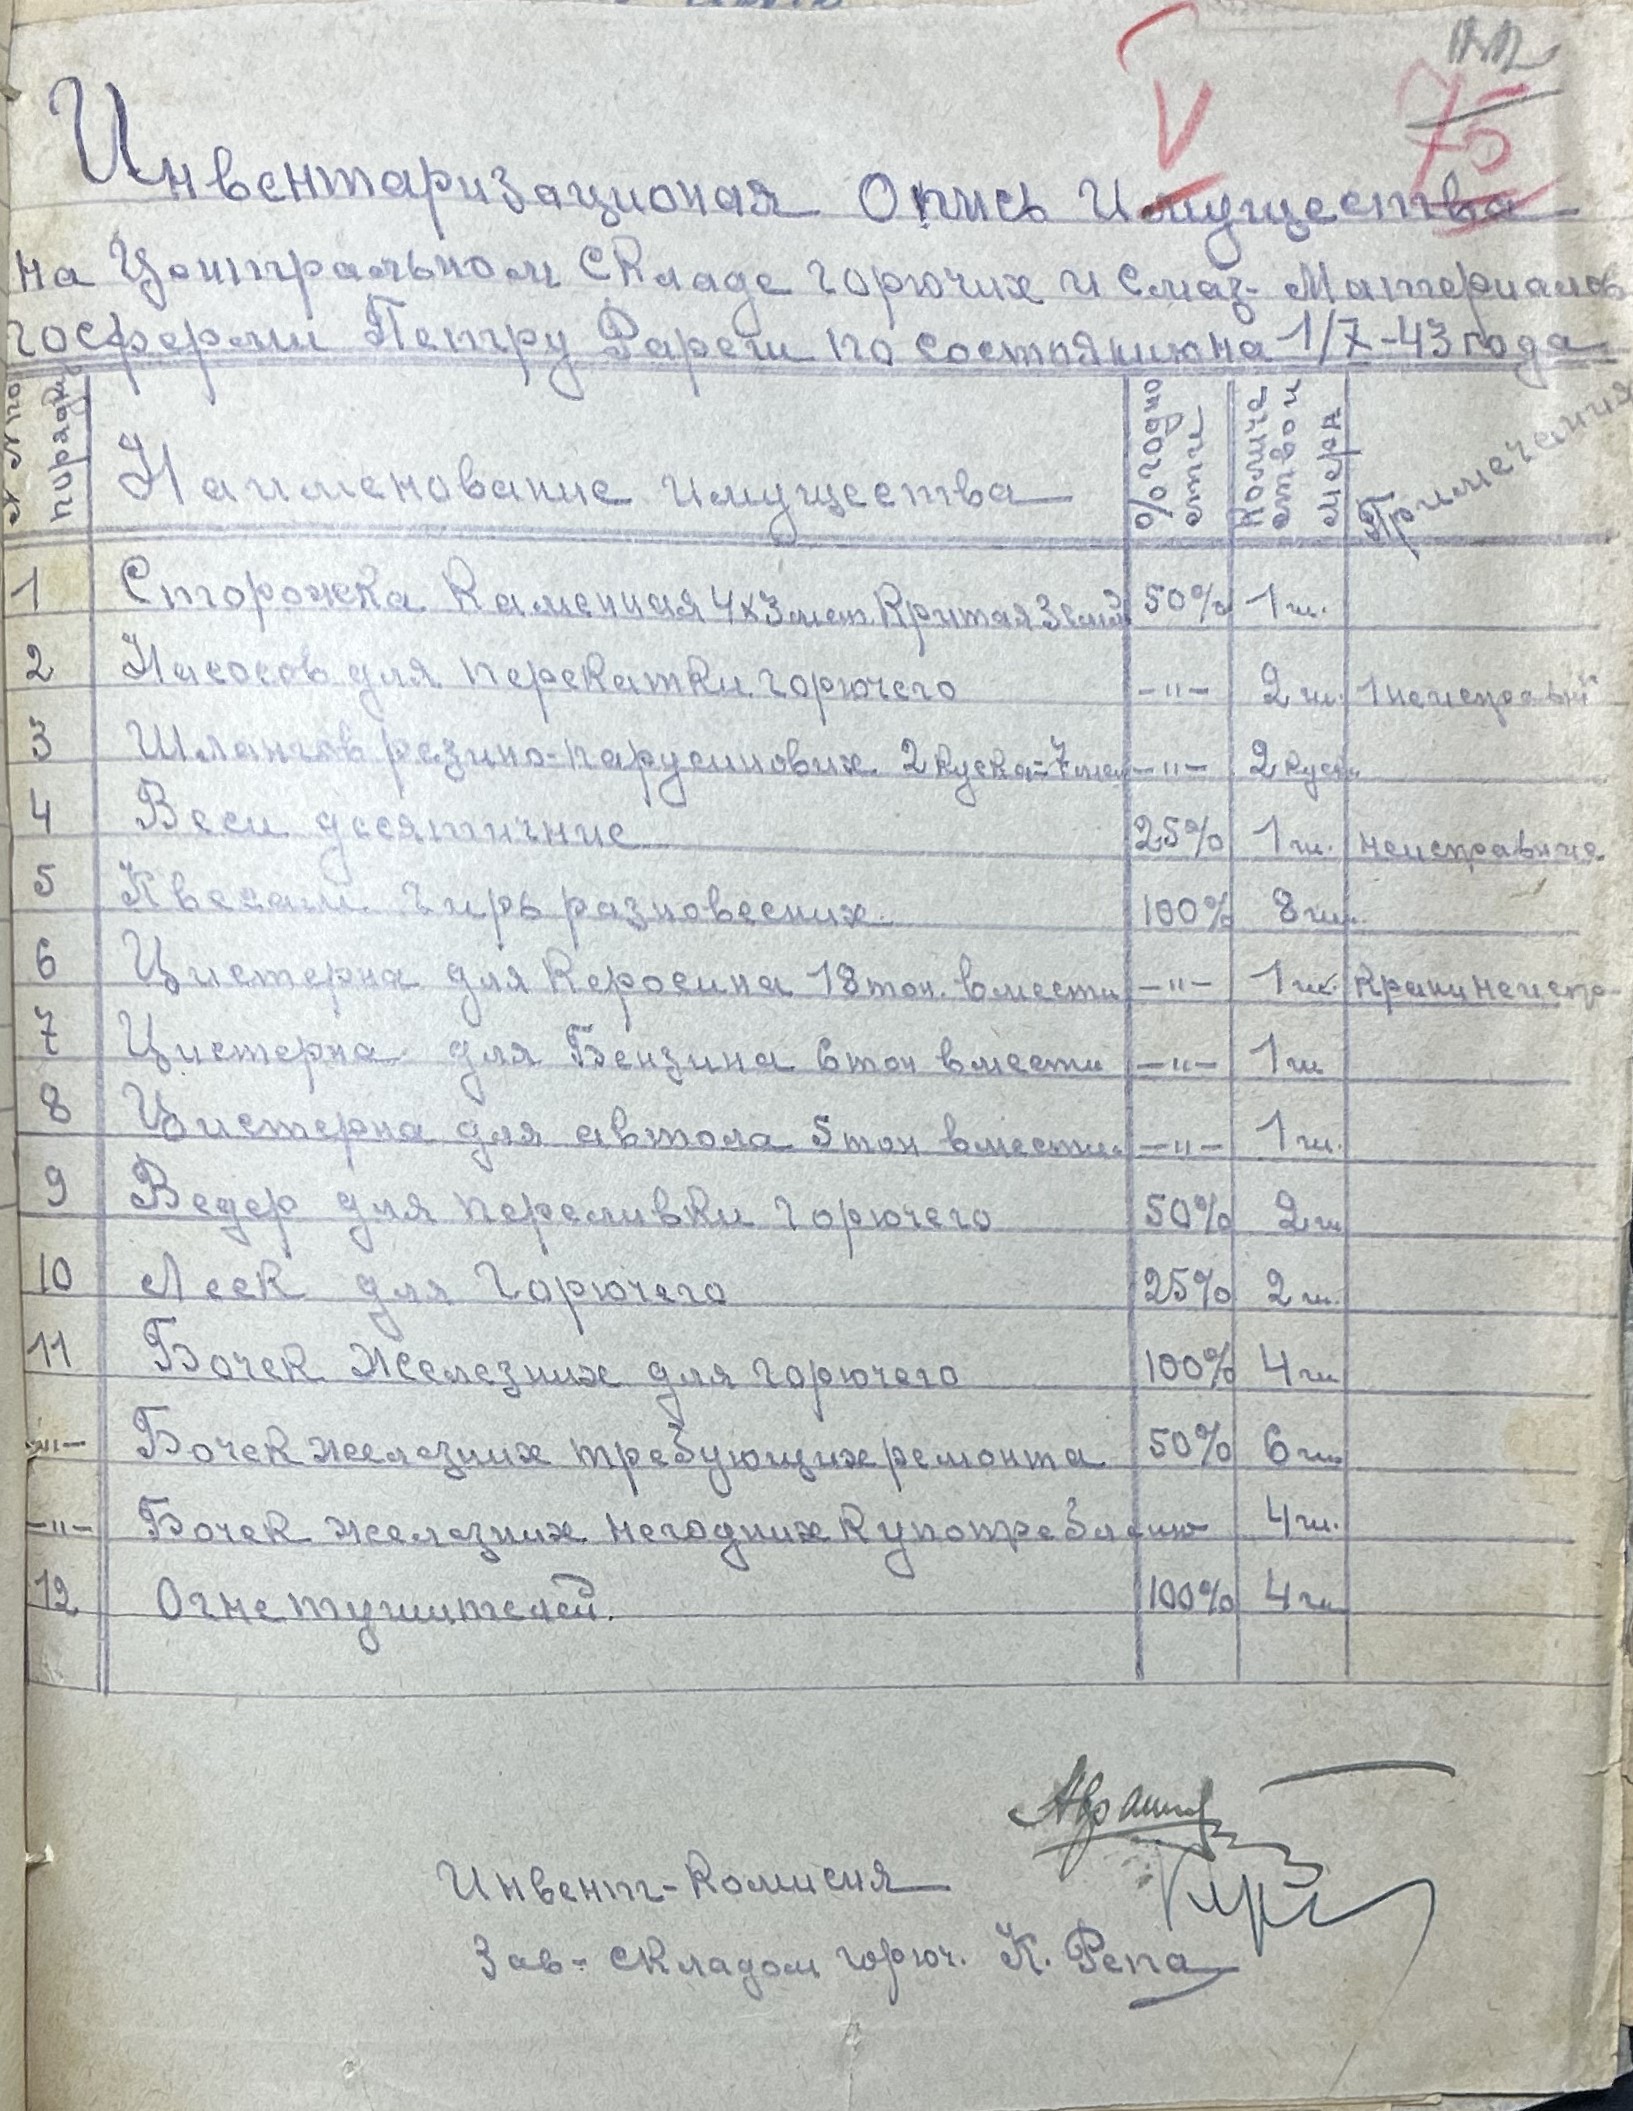 75
Инвентаризационая Опись Имущества
на Центральном складе горючих и смаз- Материалов
госферми Петру Рареш по состоянию на 1/7-43 года
№ № по порядку | Наименование имущества | % годности | Количество в номере | Примечания
1 Сторожка Каменная 4х3 мет. Критая Землей 50% 1 ш.
2 Насосов для перекатки горючего -"- 2 ш. 1 неисправный
3 Шлангов резино-парусинових 2 куска=7 мет -"- 2 куска
4 Веси десятичние 25% 1 ш. неисправние
5 К весам гирь разновесних 100% 8 ш.
6 Цистерна для Керосина 18 тон. вмести -"- 1 ш. крани неиспр-
7 Цистерна для Бензина 6 тон вмести -"- 1 ш
8 Цистерна для автола 5 тон вмести. -"- 1 ш.
9 Ведер для переливки горючего 50% 2 ш
10 Леек для Горючего 25% 2 ш.
11 Бочек Железних для горючего 100% 4 ш.
-"- Бочек железних требующих ремонта 50% 6 ш.
-"- Бочек железних негодних к употреблению 4 ш.
12 Огнетушителей. 100% 4 ш
Инвент-Комисия
Зав- складом горюч. К. Репа